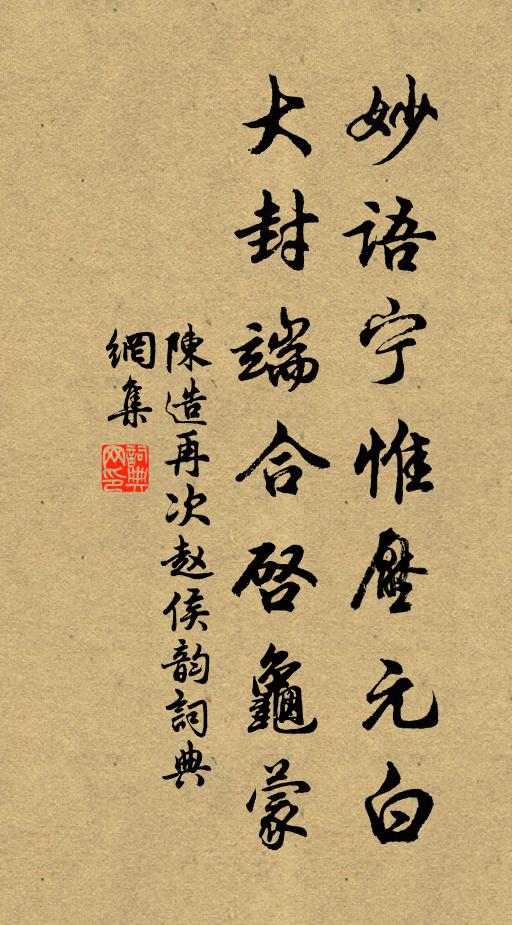 妙语宁惟壓元白
大封端合啓龜蒙
陳造再次赵侯韵詞典
網集
詞典网印